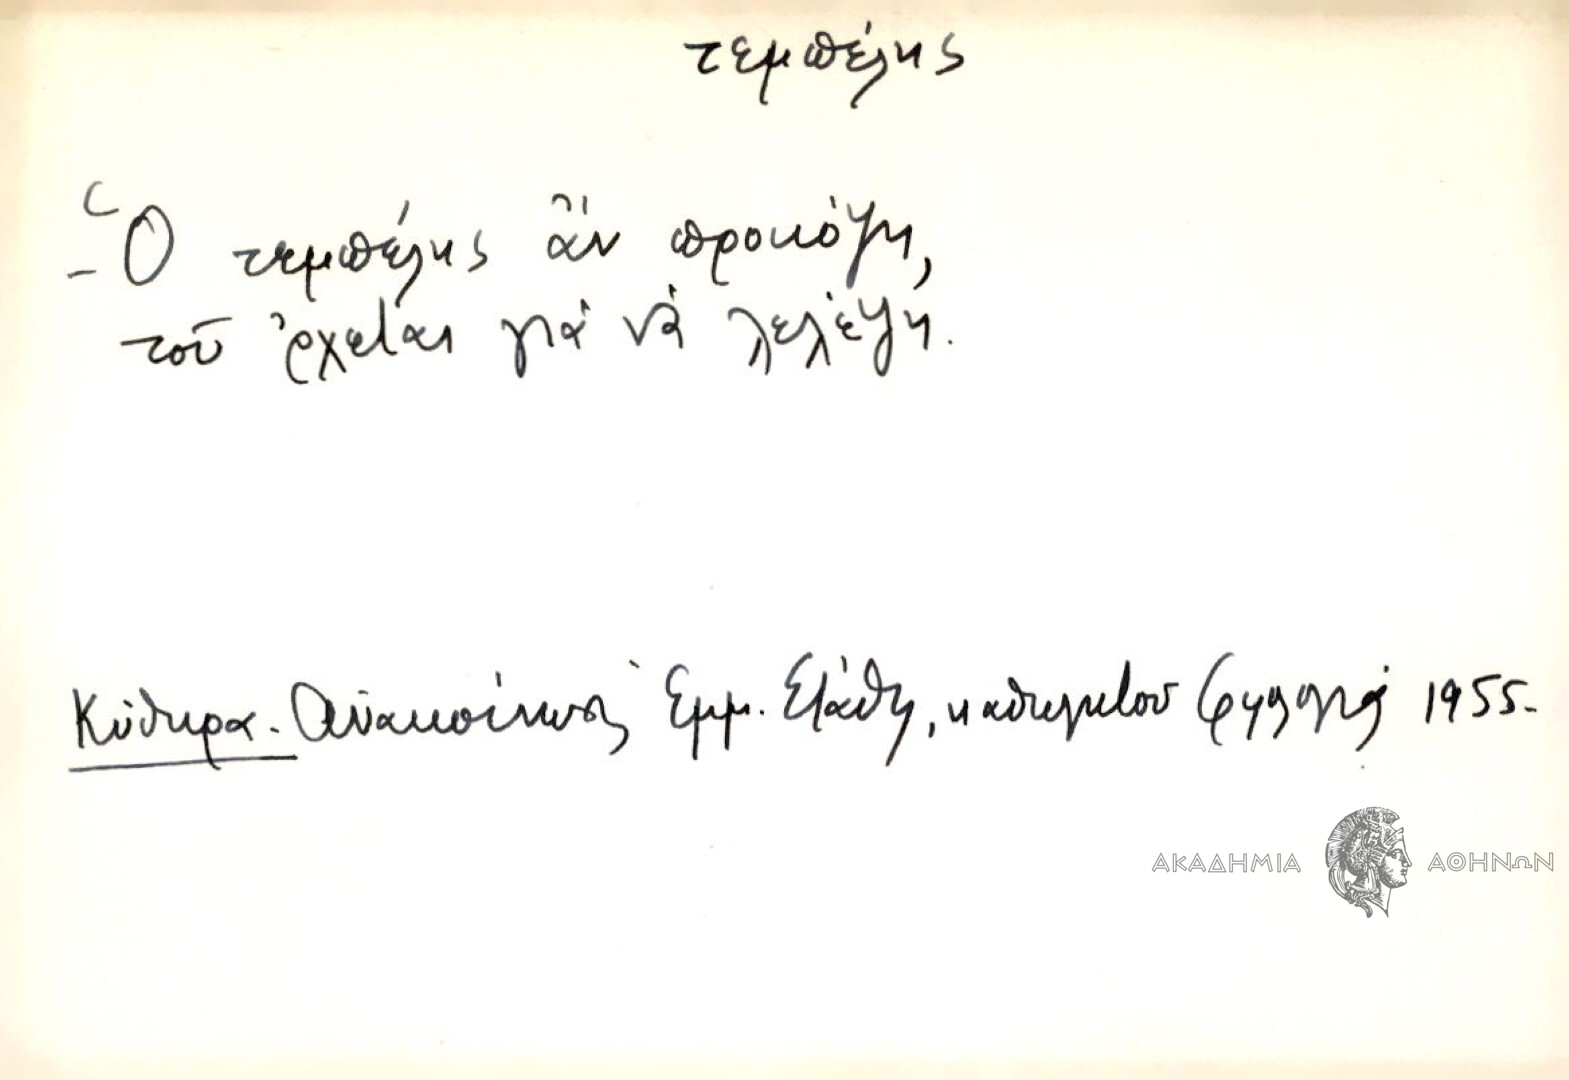 τεμπέλης
- Ὁ τεμπέλης ἂν προκόψη,
τοῦ ἔρχεται γιὰ νὰ λελέψη.
Κύθηρα. Ἀνακοίνωσις Ἐμμ. Στάθη, καθηγητοῦ 1955.
ΑΚΑΔΗΜΙΑ ΑΘΗΝΩΝ